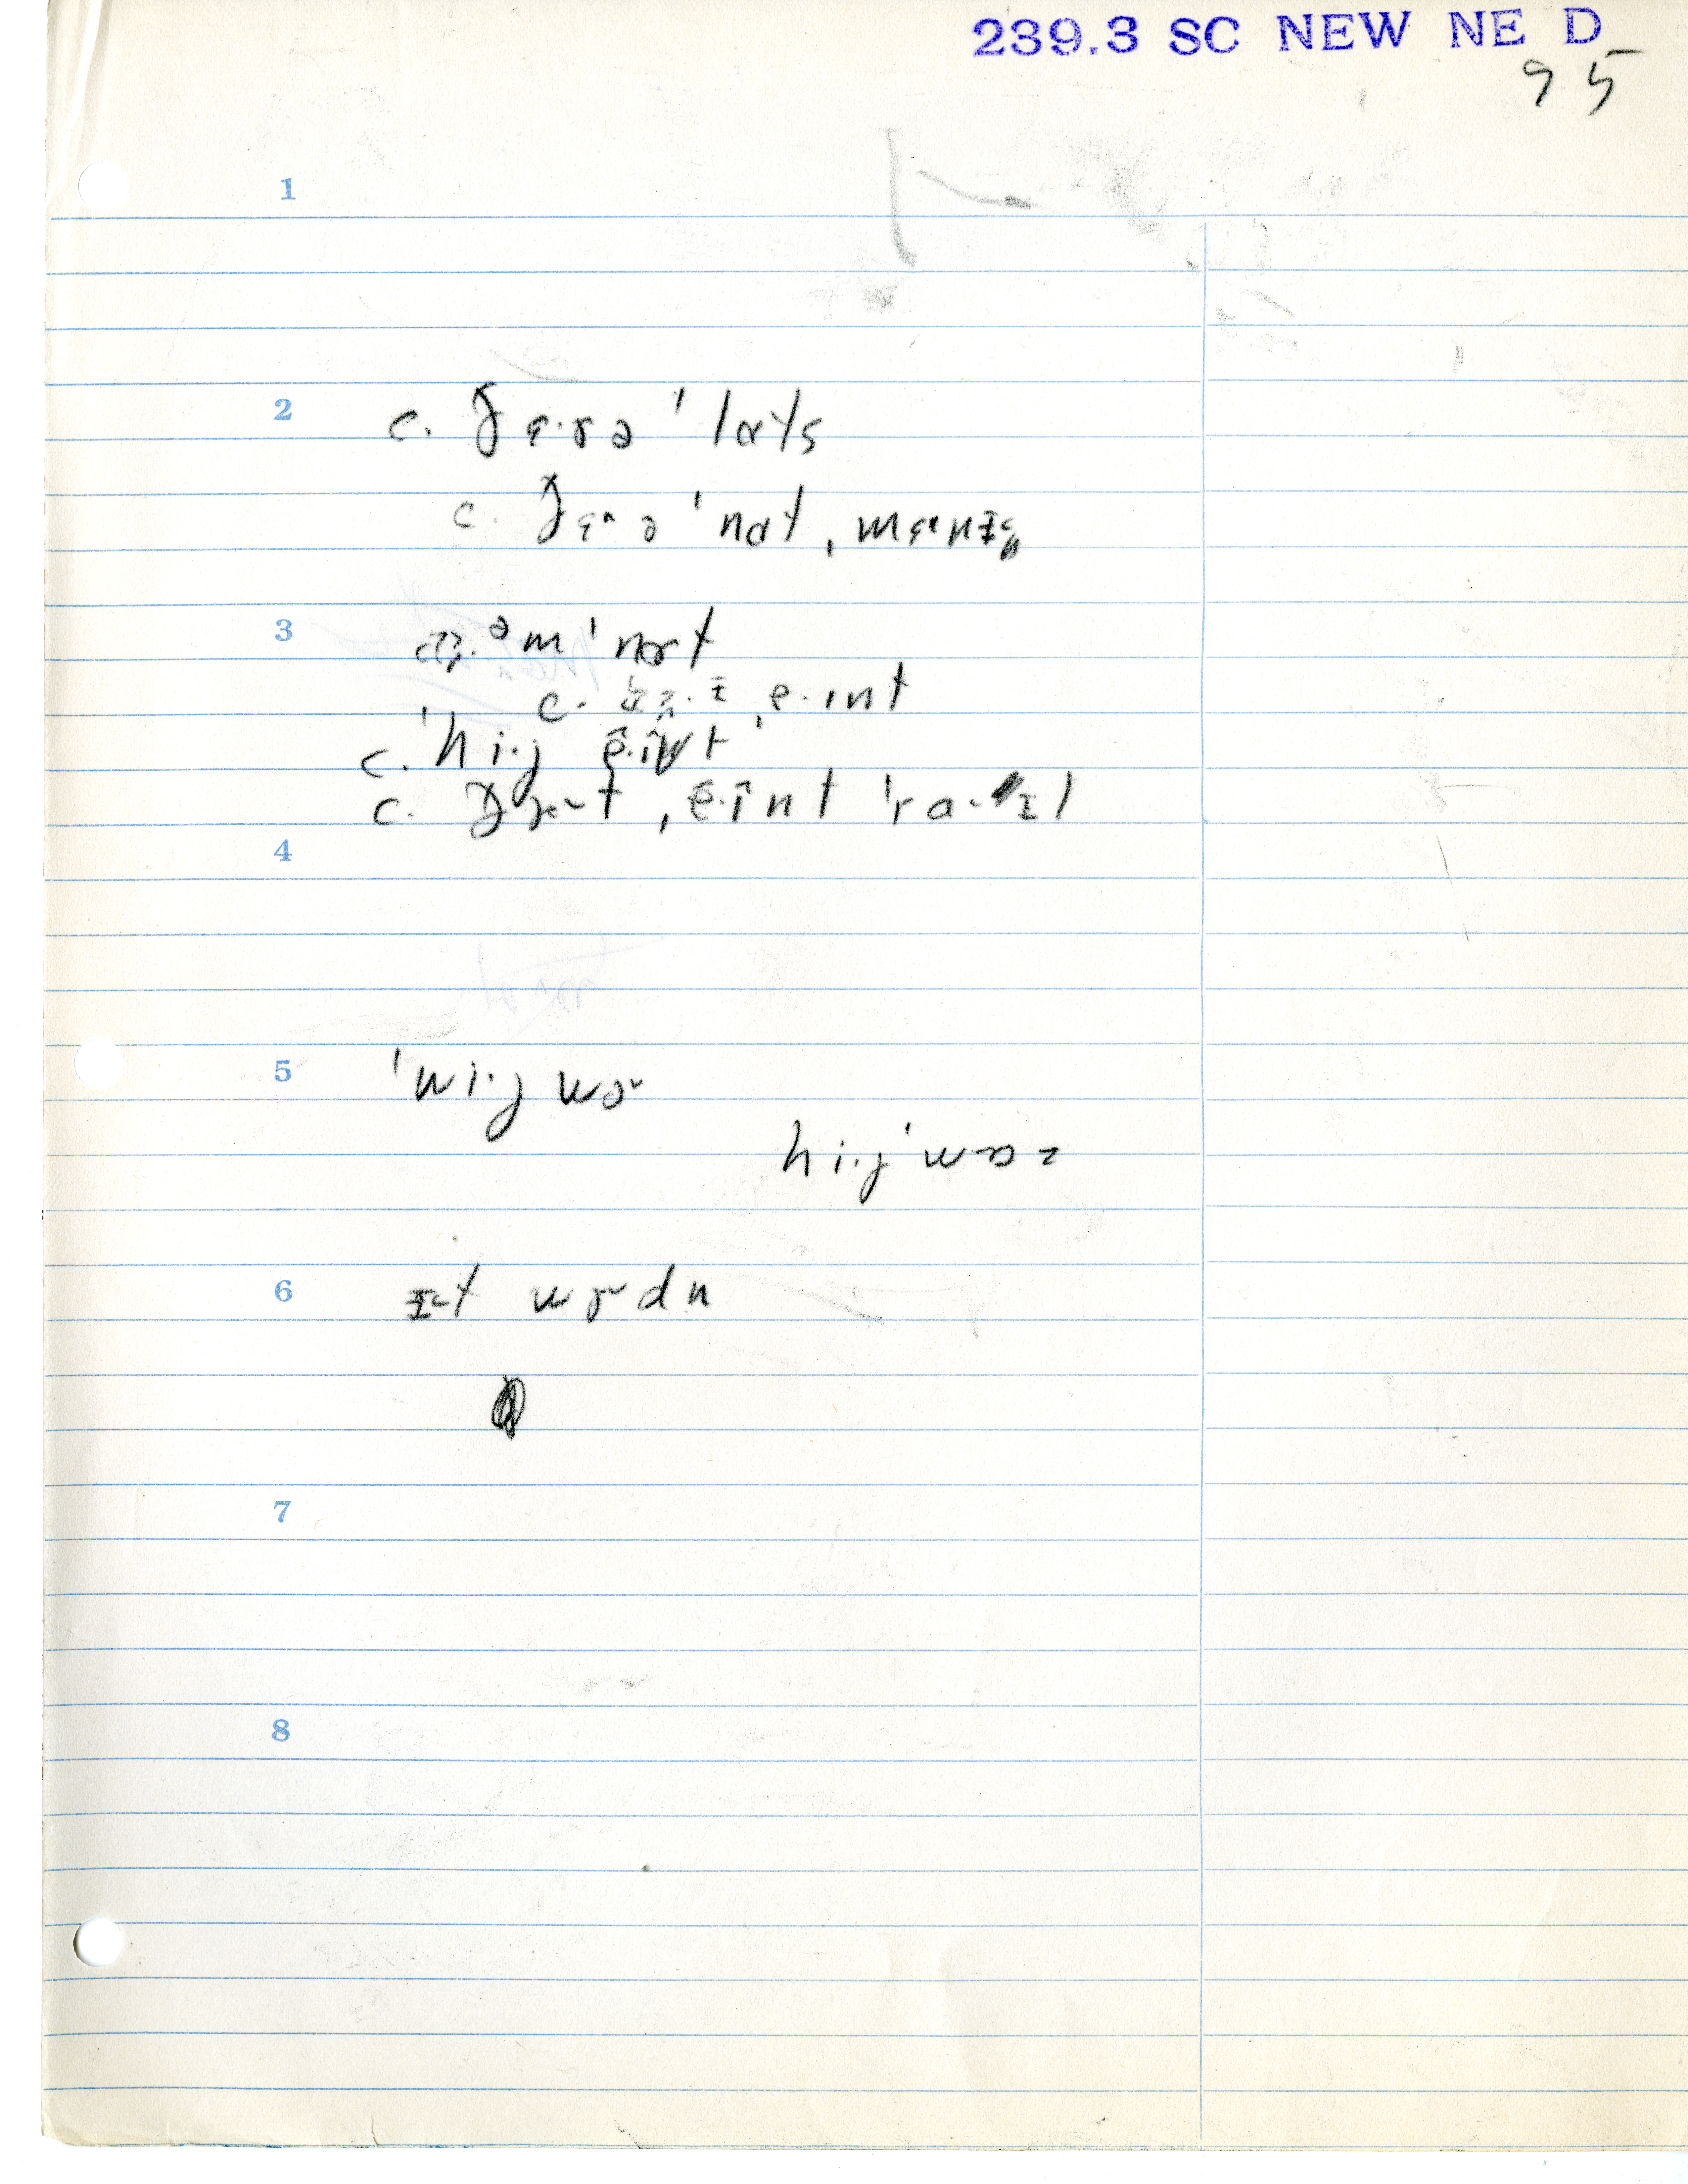 239.3 SC NEW NE D
95
1
2
c. ðɛ·rə ˈlɑts
c. ðɛ· ə ˈnɑt, mɛ·nɪ
3
əm ˈnɑt
c. ˌe·ɪnt
c. ˈhi·j ẽ·ĩnt
c. ðæ·t ˌẽ·ĩnt ˈra· ɪl
4
5
ˈwi·j wɚ
hi·j ˈwɒz
6
ɪt wɚdn
7
8